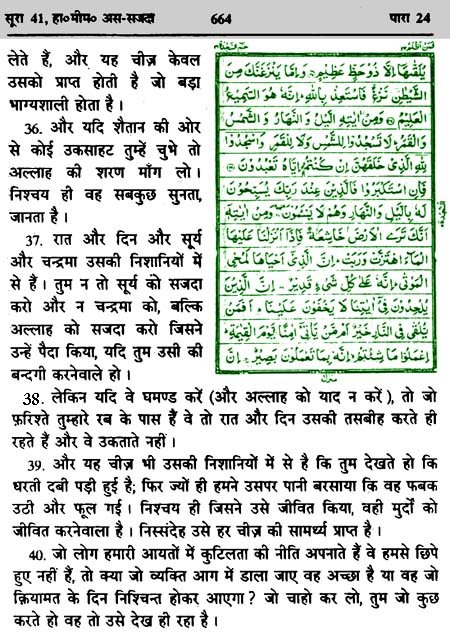 सूरा 41, हा०मीम० अस-सजदा 664 पारा 24
लेते हैं, और यह चीज़ केवल
उसको प्राप्त होती है जो बड़ा
भाग्यशाली होता है ।
36. और यदि शैतान की ओर
से कोई उकसाहट तुम्हें चुभे तो
अल्लाह की शरण माँग लो ।
निश्चय ही वह सबकुछ सुनता,
जानता है ।
37. रात और दिन और सूर्य
और चन्द्रमा उसकी निशानियों में
से हैं । तुम न तो सूर्य को सजदा
करो और न चन्द्रमा को, बल्कि
अल्लाह को सजदा करो जिसने
उन्हें पैदा किया, यदि तुम उसी की
बन्दगी करनेवाले हो ।
يُلَقّٰىهَاۤ اِلَّا ذُوْ حَظٍّ عَظِيْمٍ وَاِمَّا يَنْزَغَنَّكَ مِنَ
الشَّيْطٰنِ نَزْغٌ فَاسْتَعِذْ بِاللّٰهِ اِنَّهٗ هُوَ السَّمِيْعُ
الْعَلِيْمُ وَمِنْ اٰيٰتِهِ الَّيْلُ وَالنَّهَارُ وَالشَّمْسُ
وَالْقَمَرُ لَا تَسْجُدُوْا لِلشَّمْسِ وَلَا لِلْقَمَرِ وَاسْجُدُوْا
لِلّٰهِ الَّذِيْ خَلَقَهُنَّ اِنْ كُنْتُمْ اِيَّاهُ تَعْبُدُوْنَ
فَاِنِ اسْتَكْبَرُوْا فَالَّذِيْنَ عِنْدَ رَبِّكَ يُسَبِّحُوْنَ
لَهٗ بِالَّيْلِ وَالنَّهَارِ وَهُمْ لَا يَسْـَٔمُوْنَ وَمِنْ اٰيٰتِهٖۤ
اَنَّكَ تَرَى الْاَرْضَ خَاشِعَةً فَاِذَاۤ اَنْزَلْنَا عَلَيْهَا
الْمَآءَ اهْتَزَّتْ وَرَبَتْ اِنَّ الَّذِيْۤ اَحْيَاهَا لَمُحْيِ
الْمَوْتٰى اِنَّهٗ عَلٰى كُلِّ شَيْءٍ قَدِيْرٌ اِنَّ الَّذِيْنَ
يُلْحِدُوْنَ فِيْۤ اٰيٰتِنَا لَا يَخْفَوْنَ عَلَيْنَا اَفَمَنْ
يُّلْقٰى فِي النَّارِ خَيْرٌ اَمْ مَّنْ يَّاْتِيْۤ اٰمِنًا يَّوْمَ الْقِيٰمَةِ
اِعْمَلُوْا مَا شِئْتُمْ اِنَّهٗ بِمَا تَعْمَلُوْنَ بَصِيْرٌ اِنَّ
38. लेकिन यदि वे घमण्ड करें (और अल्लाह को याद न करें ), तो जो
फ़रिश्ते तुम्हारे रब के पास हैं वे तो रात और दिन उसकी तसबीह करते ही
रहते हैं और वे उकताते नहीं ।
39. और यह चीज़ भी उसकी निशानियों में से है कि तुम देखते हो कि
धरती दबी पड़ी हुई है; फिर ज्यों ही हमने उसपर पानी बरसाया कि वह फबक
उठी और फूल गई । निश्चय ही जिसने उसे जीवित किया, वही मुर्दों को
जीवित करनेवाला है । निस्संदेह उसे हर चीज़ की सामर्थ्य प्राप्त है ।
40. जो लोग हमारी आयतों में कुटिलता की नीति अपनाते हैं वे हमसे छिपे
हुए नहीं हैं, तो क्या जो व्यक्ति आग में डाला जाए वह अच्छा है या वह जो
क़ियामत के दिन निश्चिन्त होकर आएगा ? जो चाहो कर लो, तुम जो कुछ
करते हो वह तो उसे देख ही रहा है ।